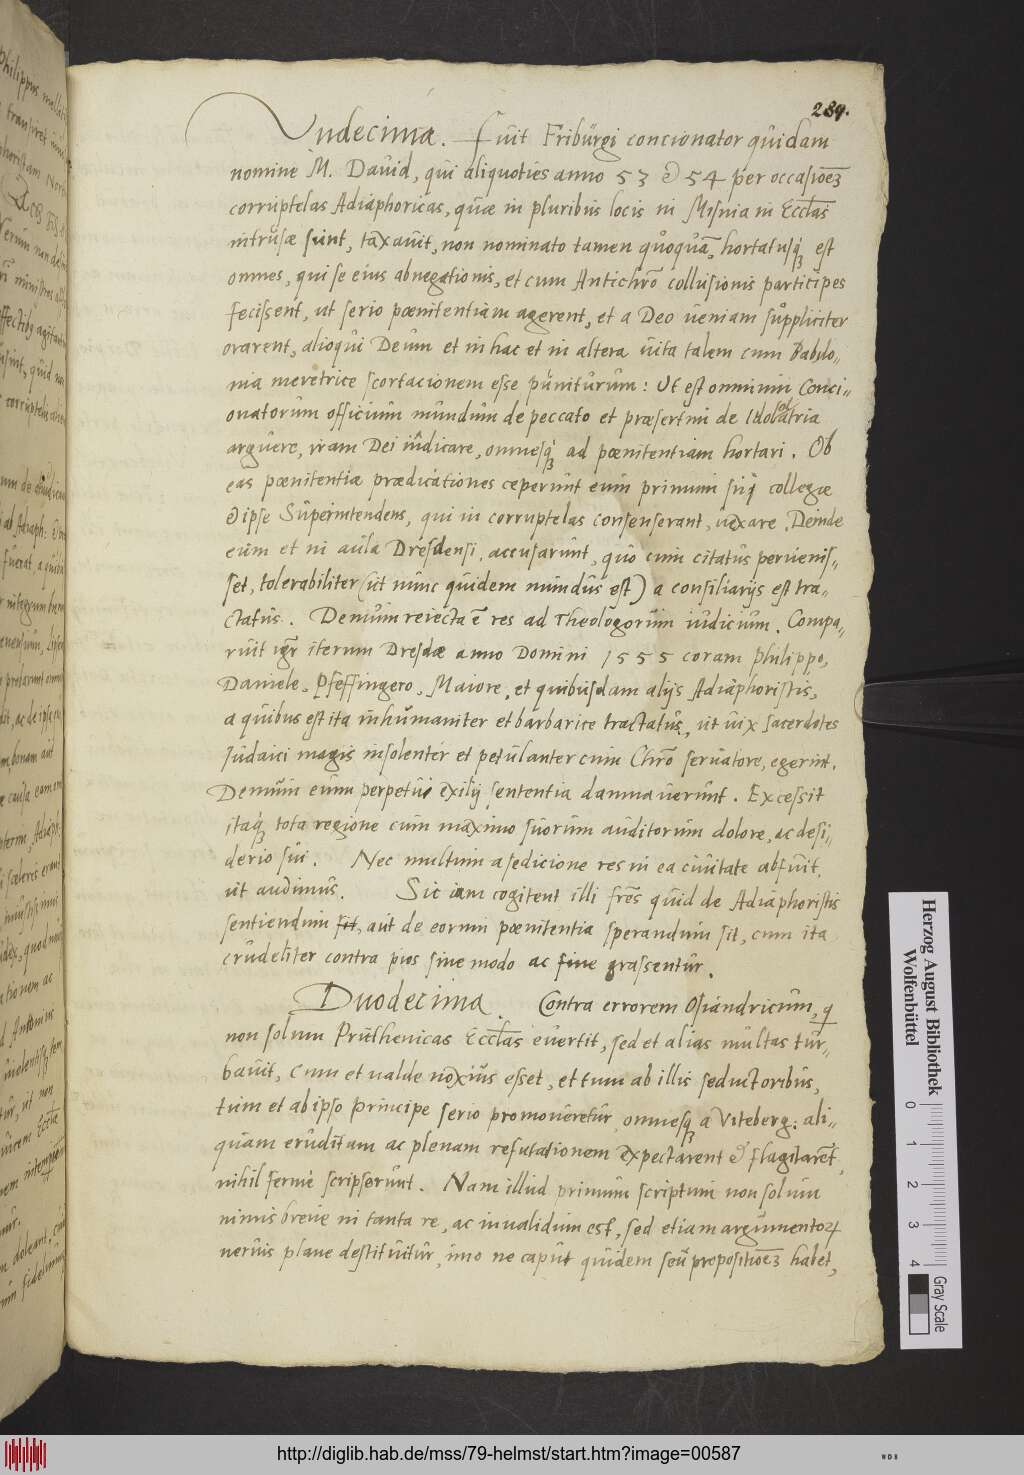 289.
Vndecima. Fuit Friburgi concionator quidam
nomine M. Dauid, qui aliquoties anno 53 & 54 per occasioēs
corruptelas Adiaphoricas, quæ in pluribus locis in Misnia in Ecclās
intrusæ sunt, taxauit, non nominato tamen quoquā, hortatusq; est
omnes, qui se eius abnegationis, et cum Antichrō collusionis participes
fecissent, ut serio pœnitentiam agerent, et a Deo ueniam suppliciter
orarent, alioqui Deum et in hac et in altera uita talem cum Babilo-
nia meretrice scortacionem esse puniturum: Ut est omnium Conci-
onatorum officium mundum de peccato et præsertim de Idololatria
arguere, iram Dei indicare, omnesq; ad pœnitentiam hortari. Ob
eas pœnitentiæ prædicationes ceperunt eum primum sui collegæ
& ipse Superintendens, qui in corruptelas consenserant, uexare. Deinde
eum et in aula Dresdensi accusarunt, quo cum citatus peruenis-
set, tolerabiliter (ut nunc quidem mundus est) a consiliarijs est tra-
ctatus. Demum reiecta ē res ad Theologorum iudicium. Compa-
ruit igr iterum Dresdæ anno Domini 1555 coram Philippo,
Daniele, Pfeffingero, Maiore, et quibusdam alijs Adiaphoristis,
a quibus est ita inhumaniter et barbarice tractatus, ut uix sacerdotes
Iudaici magis insolenter et petulanter cum Chrō seruatore, egerint.
Demum eum perpetui exilij sententia damnauerunt. Excessit
itaq; tota regione cum maximo suorum auditorum dolore, ac desi-
derio sui. Nec multum a sedicione res in ea ciuitate abfuit,
ut audimus. Sic iam cogitent illi frēs quid de Adiaphoristis
sentiendum sit, aut de eorum pœnitentia sperandum sit, cum ita
crudeliter contra pios sine modo ac fine grassentur.
Duodecima. Contra errorem Osiandricum, q
non solum Pruthenicas Ecclās euertit, sed et alias multas tur-
bauit, Cum et ualde noxius esset, et tum ab illis seductoribus,
tum et ab ipso Principe serio promoueretur omnesq; a Viteberg: ali-
quam eruditam ac plenam refutationem expectarent & flagitarēt,
nihil fermè scripserunt. Nam illud primum scriptum non solum
nimis breue in tanta re, ac inualidum est, sed etiam argumentoꝝ
neruis plane destituitur, imo ne caput quidem seu propositioēs habet,
Herzog August Bibliothek
Wolfenbüttel
0 1 2 3 4
Gray Scale
http://diglib.hab.de/mss/79-helmst/start.htm?image=00587
WDB